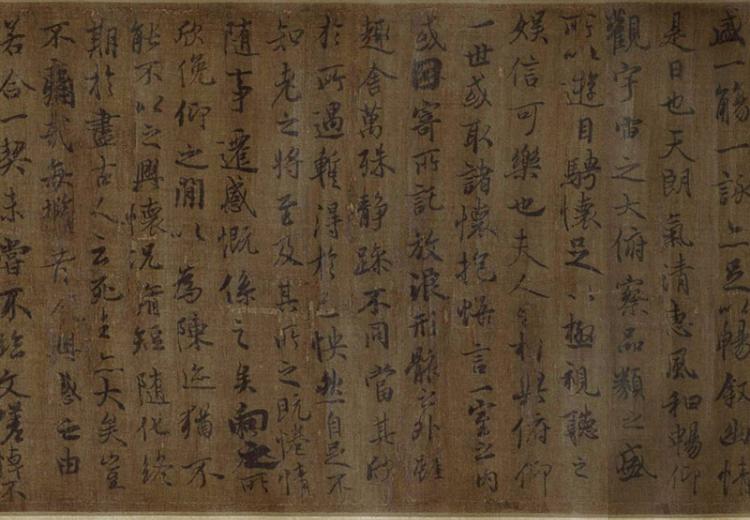 盛一觴一詠亦足以暢叙幽情
是日也天朗氣清惠風和暢仰
觀宇宙之大俯察品類之盛
所以遊目騁懷足以極視聽之
娱信可樂也夫人之相與俯仰
一世或取諸懷抱悟言一室之内
或因寄所託放浪形骸之外雖
趣舍萬殊静躁不同當其欣
於所遇蹔得於己怏然自足不
知老之將至及其所之既惓情
隨事遷感慨係之矣向之所
欣俛仰之閒以為陳迹猶不
能不以之興懷況脩短隨化終
期於盡古人云死生亦大矣豈
不痛哉每攬昔人興感之由
若合一契未嘗不臨文嗟悼不